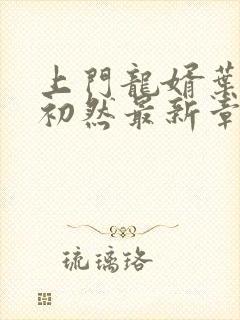 上門龍婿葉
初然最新章
琉璃珞